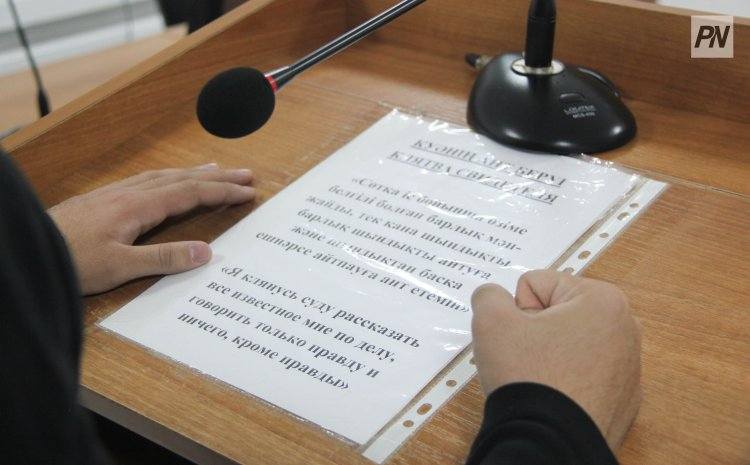 PN
КУӘНІҢ АНТ БЕРУІ
КЛЯТВА СВИДЕТЕЛЯ
«Сотқа іс бойынша өзіме
белгілі болған барлық мән-
жайды, тек қана шындықты,
барлық шындықты айтуға
және шындықтан басқа
ешнәрсе айтпауға ант етемін»
«Я клянусь суду рассказать
все известное мне по делу,
говорить только правду и
ничего, кроме правды»